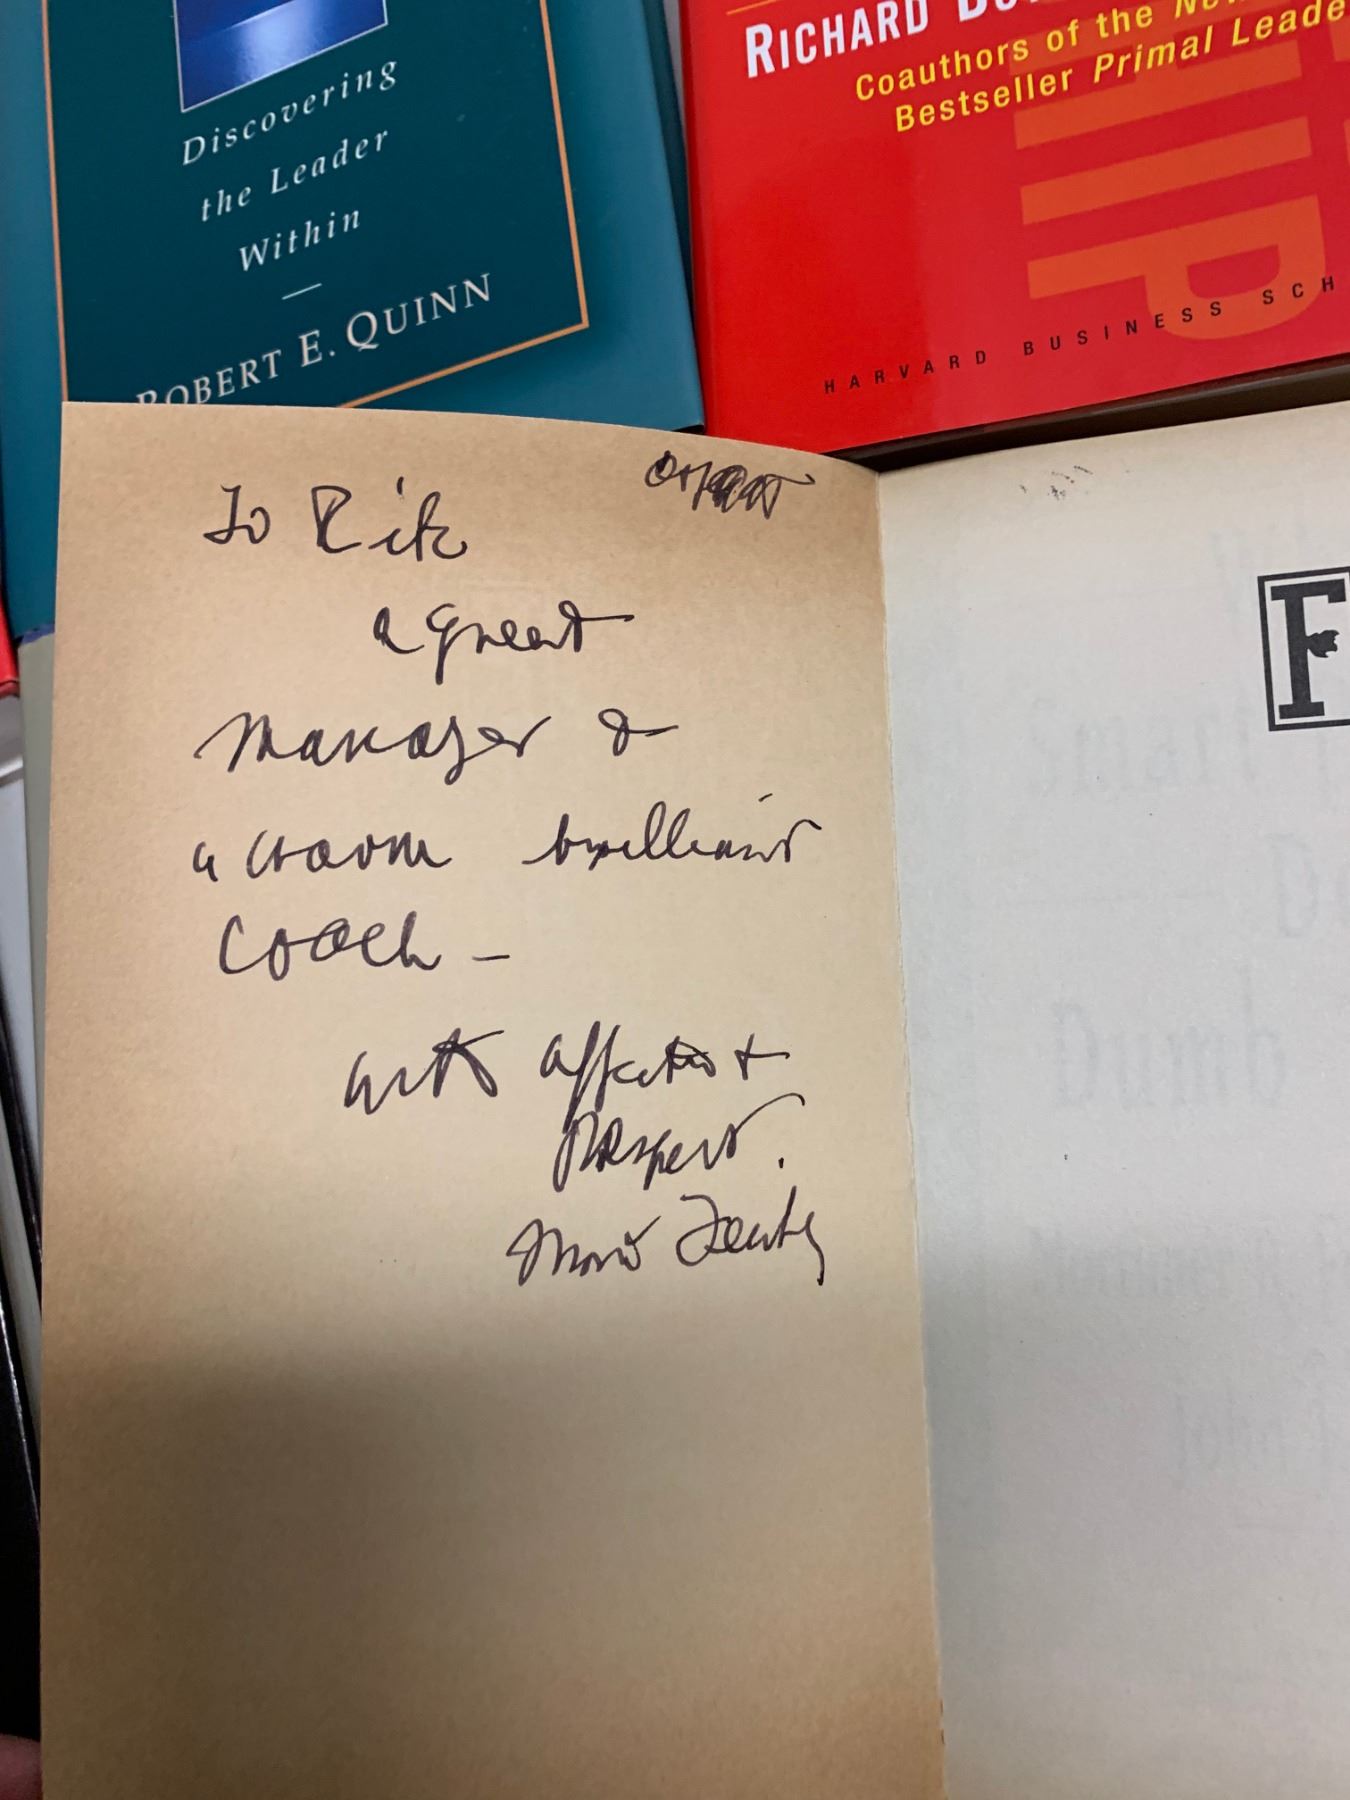 Discovering
the Leader
Within
ROBERT E. QUINN
RICHARD
Coauthors of the
Bestseller Primal Leade
HIP
HARVARD BUSINESS SCH
To Rik
a great
Manager &
a warm brilliant
Coach –
with affection +
Respect.
F
Smart
Go
Dumb
John